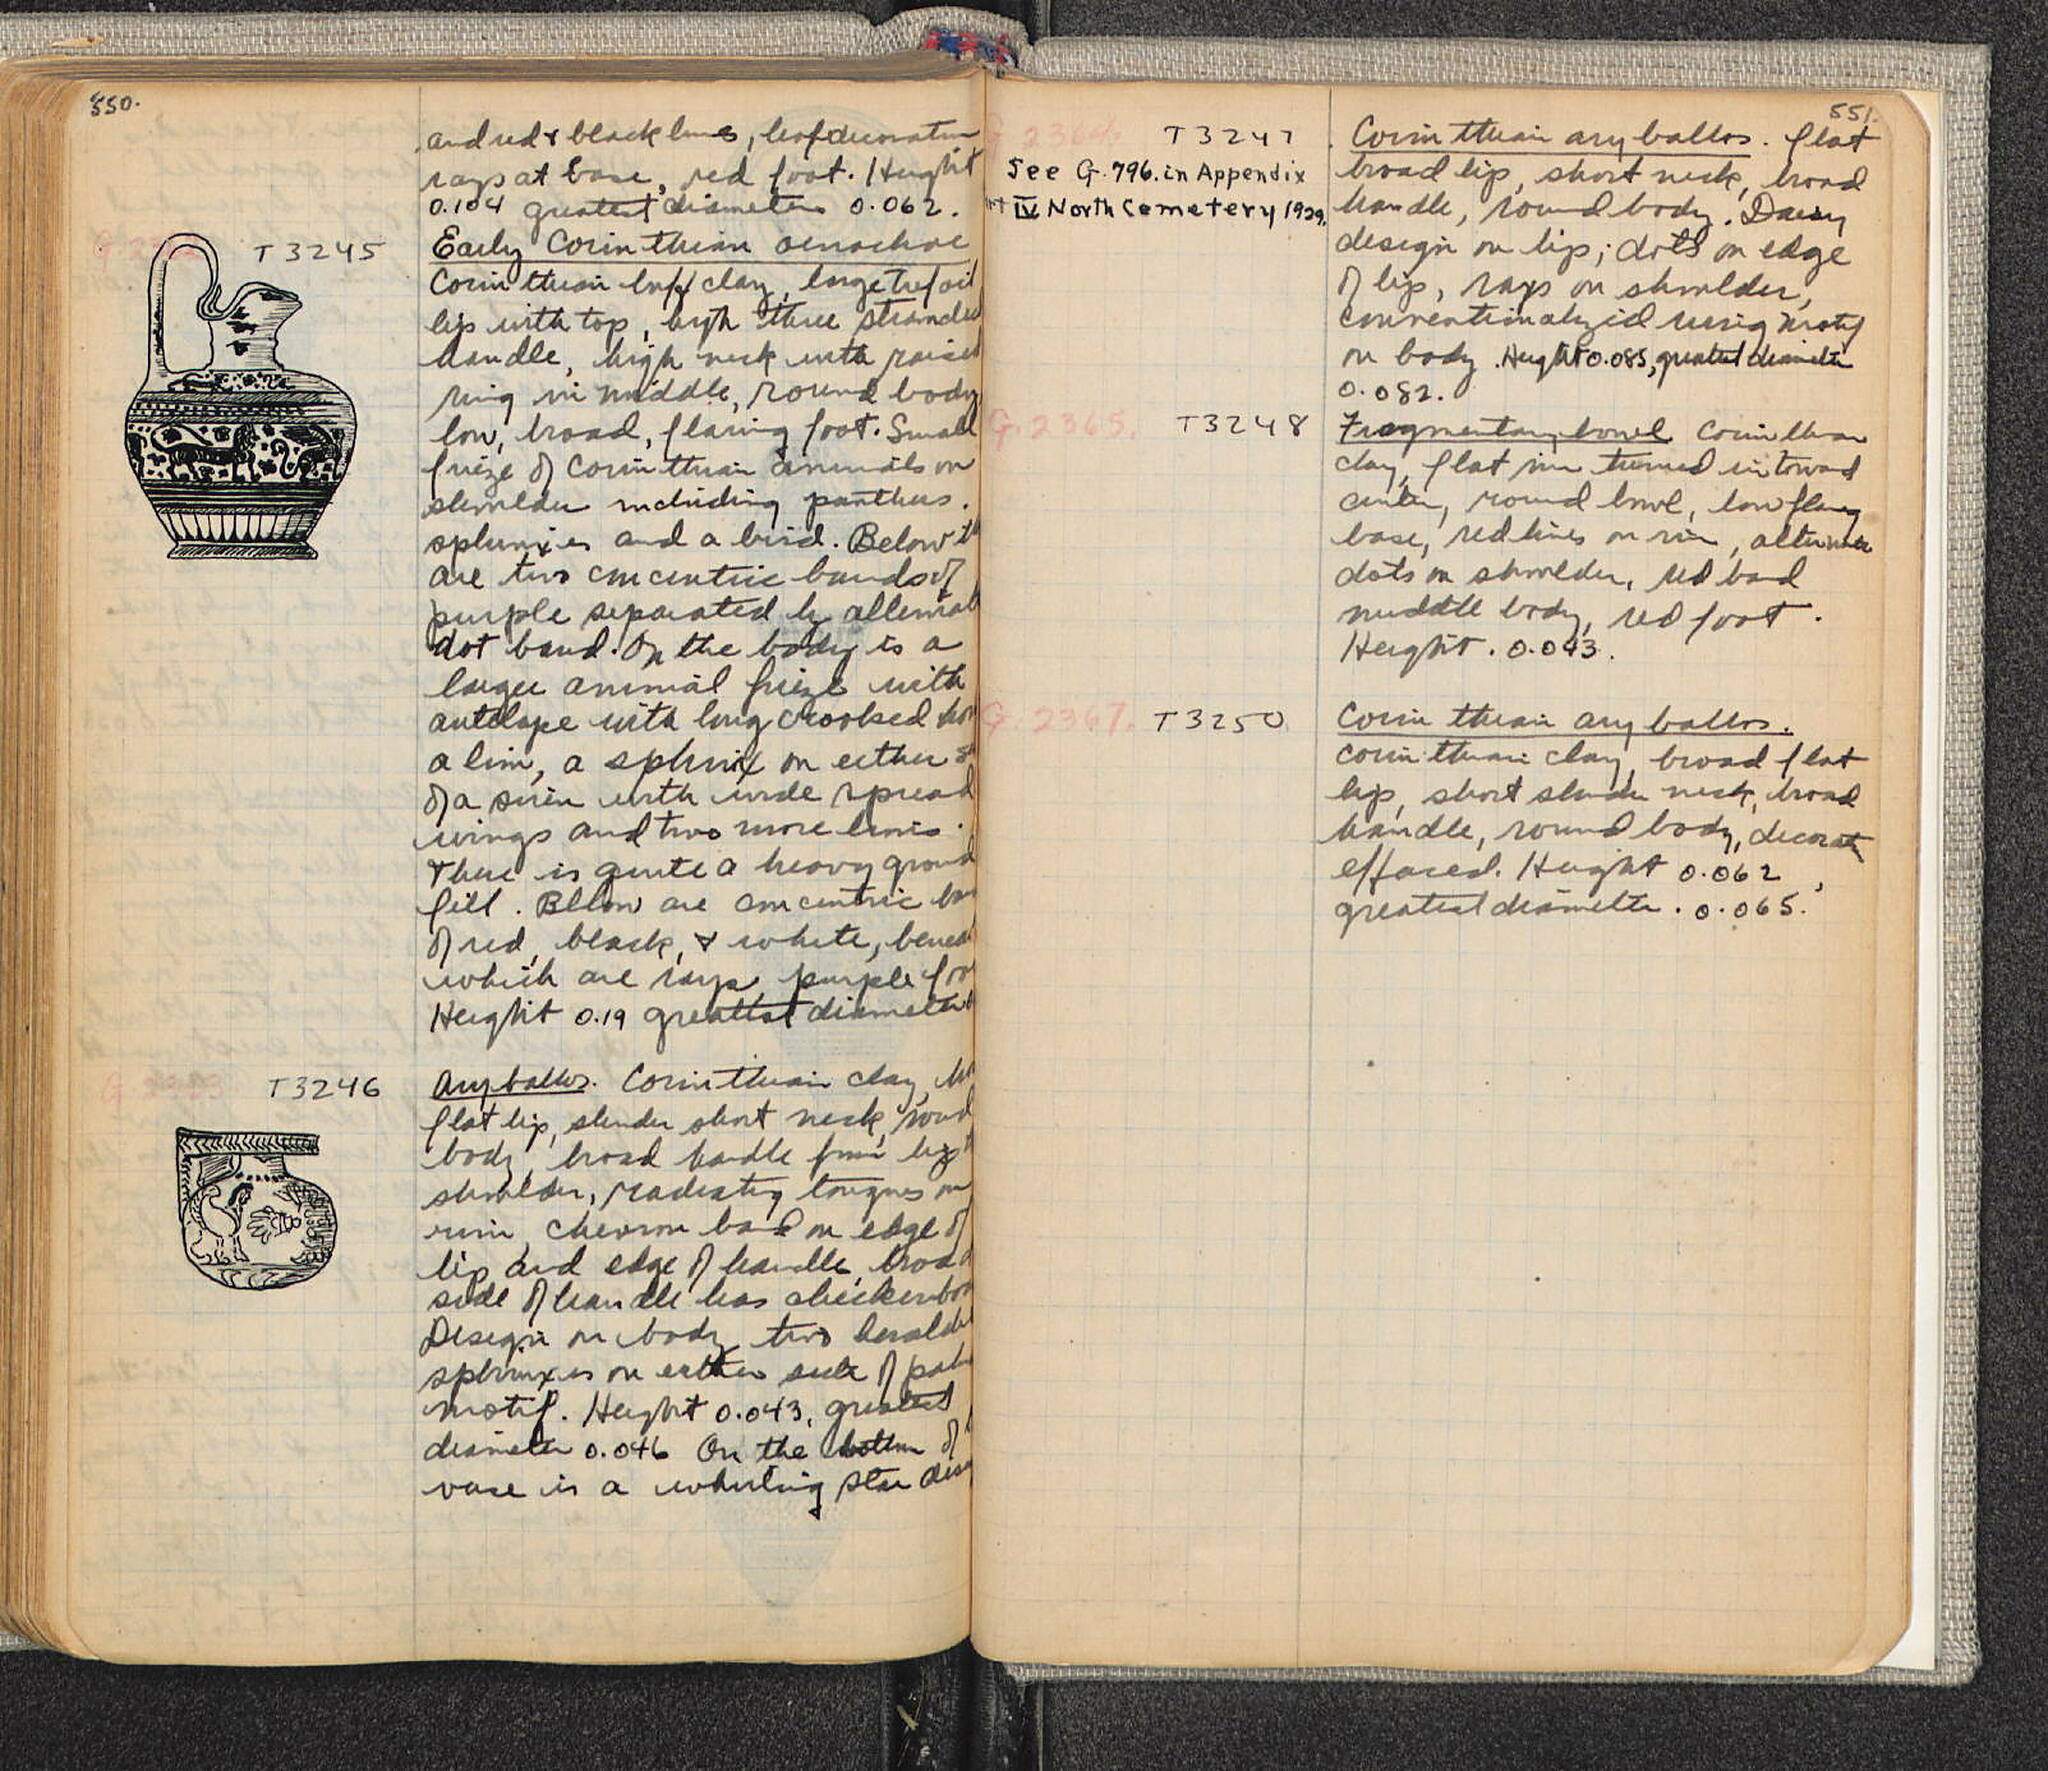 550.
and red & black lines, leaf decoration
rays at base, red foot. Height
0.104 greatest diameter 0.062.
T3245
Early Corinthian oenochoe
Corinthian buff clay, large trefoil
lip with top, high three stranded
handle, high neck with raised
ring in middle, round body
low, broad, flaring foot. Small
frieze of Corinthian animals on
shoulder including panthers.
sphinxes and a bird. Below th
are two concentric bands of
purple separated by alternat
dot band. On the body is a
larger animal frieze with
antelope with long crooked hor
a lion, a sphinx on either s
of a siren with wide spread
wings and two more lions.
There is quite a heavy ground
fill. Bllow are concentric ban
of red, black, & white, benea
which are rays, purple foo
Height 0.19 greattest diameter
G. 2323
T3246
Aryballos. Corinthian clay,
flat lip, slender short neck, round
body, broad handle from lip t
shoulder, radiating tongues on
rim, chevron band on edge of
lip and edge of handle, broad
side of handle has checkerboa
Design on body two heraldic
sphinxes on either side of palm
motif. Height 0.043, greatest
diameter 0.046 On the bottom of
vase is a whirling star desig
551.
G. 2364.
T3247
See G.796. in Appendix
IV North Cemetery 1929.
Corinthian aryballos. flat
broad lip, short neck, broad
handle, round body. Daisy
design on lip; dots on edge
of lip, rays on shoulder,
conventionalyzid wing motif
on body. Height 0.085, greatest diameter
0.082.
G. 2365.
T3248
Fragmentary bowl Corinthian
clay, flat rim turned in toward
center, round bowl, low flaring
base, red lines on rim, alternate
dots on shoulder, red band
middle body, red foot.
Height. 0.043.
G. 2367.
T3250
Corinthian aryballos.
Corinthian clay, broad flat
lip, short slender neck, broad
handle, round body, decorat
effaced. Height 0.062,
greatest diameter. 0.065.